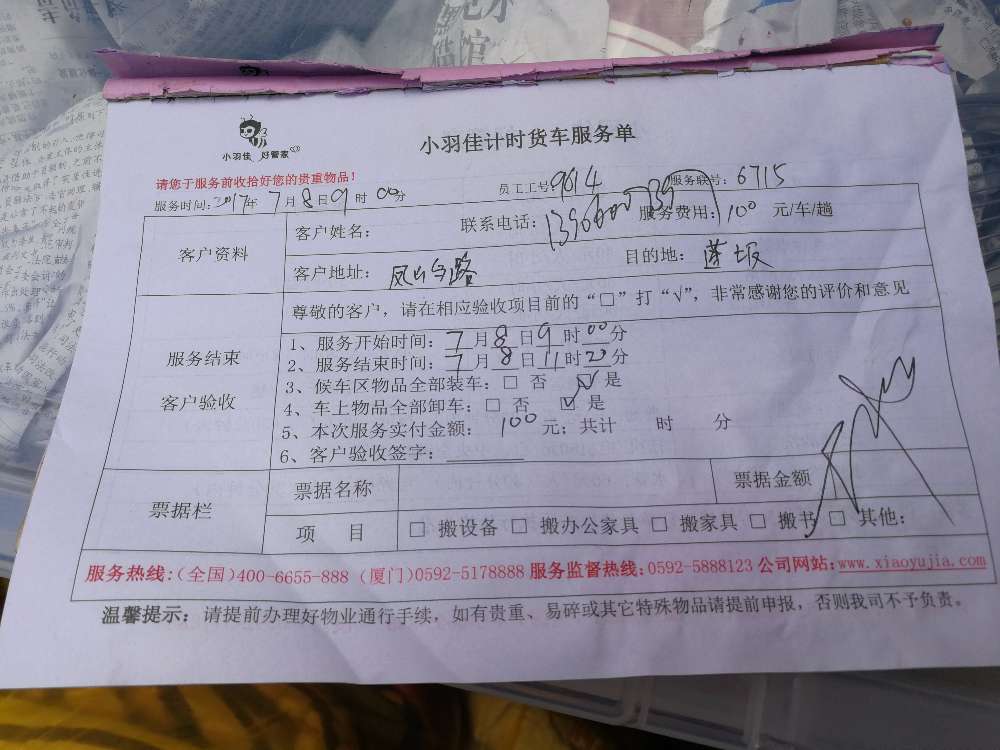 小羽佳 好管家
小羽佳计时货车服务单
请您于服务前收拾好您的贵重物品!
服务时间: 2017年 7月 8日 9时 00分 员工工号 9614 服务联号: 6715
客户资料
客户姓名: 联系电话: 服务费用: 100 元/车/趟
客户地址: 目的地: 莲坂
服务结束
客户验收
尊敬的客户,请在相应验收项目前的“□”打“√”,非常感谢您的评价和意见
1、服务开始时间: 7月 8日 9时 00分
2、服务结束时间: 7月 8日 11时 20分
3、候车区物品全部装车: □ 否 ☑ 是
4、车上物品全部卸车: □ 否 ☑ 是
5、本次服务实付金额: 100 元; 共计 时 分
6、客户验收签字:
票据栏
票据名称 票据金额
项 目 □ 搬设备 □ 搬办公家具 □ 搬家具 □ 搬书 □ 其他:
服务热线:(全国)400-6655-888 (厦门)0592-5178888 服务监督热线:0592-5888123 公司网站:www.xiaoyujia.com
温馨提示: 请提前办理好物业通行手续, 如有贵重、易碎或其它特殊物品请提前申报, 否则我司不予负责。